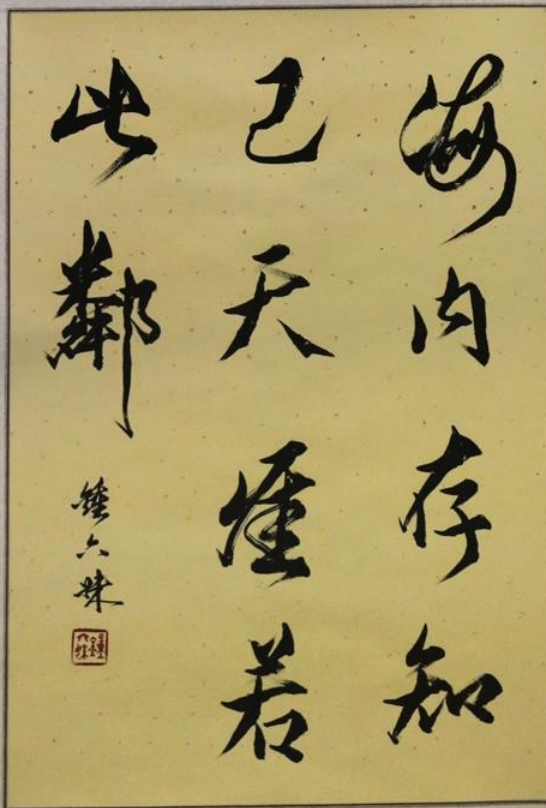 海内存知
己天涯若
此鄰
鍾六妹
鍾六妹